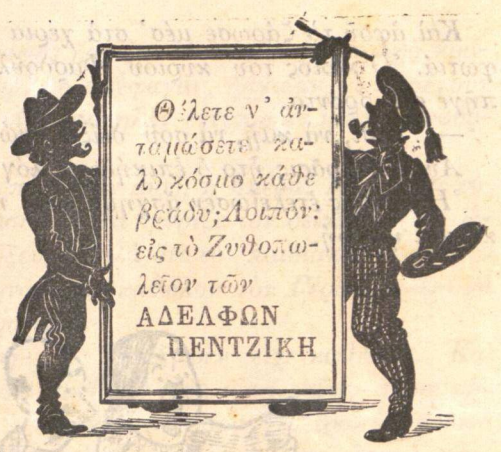 Θέλετε ν' ἀν-
ταμώσετε κα-
λὸ κόσμο κάθε
βράδυ; Λοιπόν:
εἰς τὸ Ζυθοπω-
λεῖον τῶν
ΑΔΕΛΦΩΝ
ΠΕΝΤΖΙΚΗ